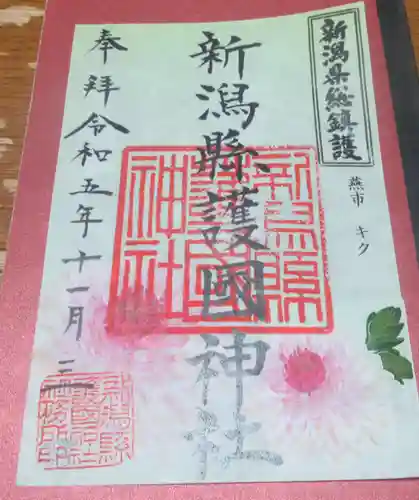 新潟県総鎮護
燕市 キク
新潟縣護國神社
奉拝 令和五年十一月三
新潟縣護國神社
新潟縣護國神社社務所印